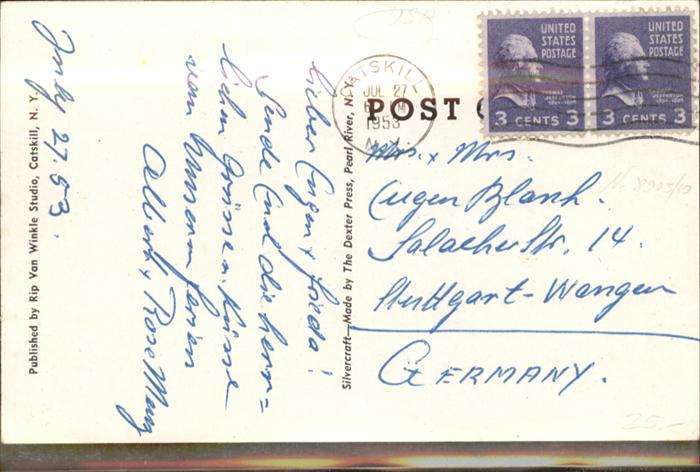 July 27. 53.
Lieber Eugen + Frieda!
Sende Euch die herz=
lichen Grüsse u. Küsse
von unseren Ferien
Albert + Rose
Published by Rip Van Winkle Studio, Catskill, N. Y.
Silvercraft—Made by The Dexter Press, Pearl River, N. Y.
POST
CATSKILL
JUL 27
1953
N.Y.
UNITED
STATES
POSTAGE
3 CENTS 3
UNITED
STATES
POSTAGE
3 CENTS 3
Mr. + Mrs.
Eugen Blank.
Salacher Str. 14.
Stuttgart-Wangen
GERMANY.
25.-